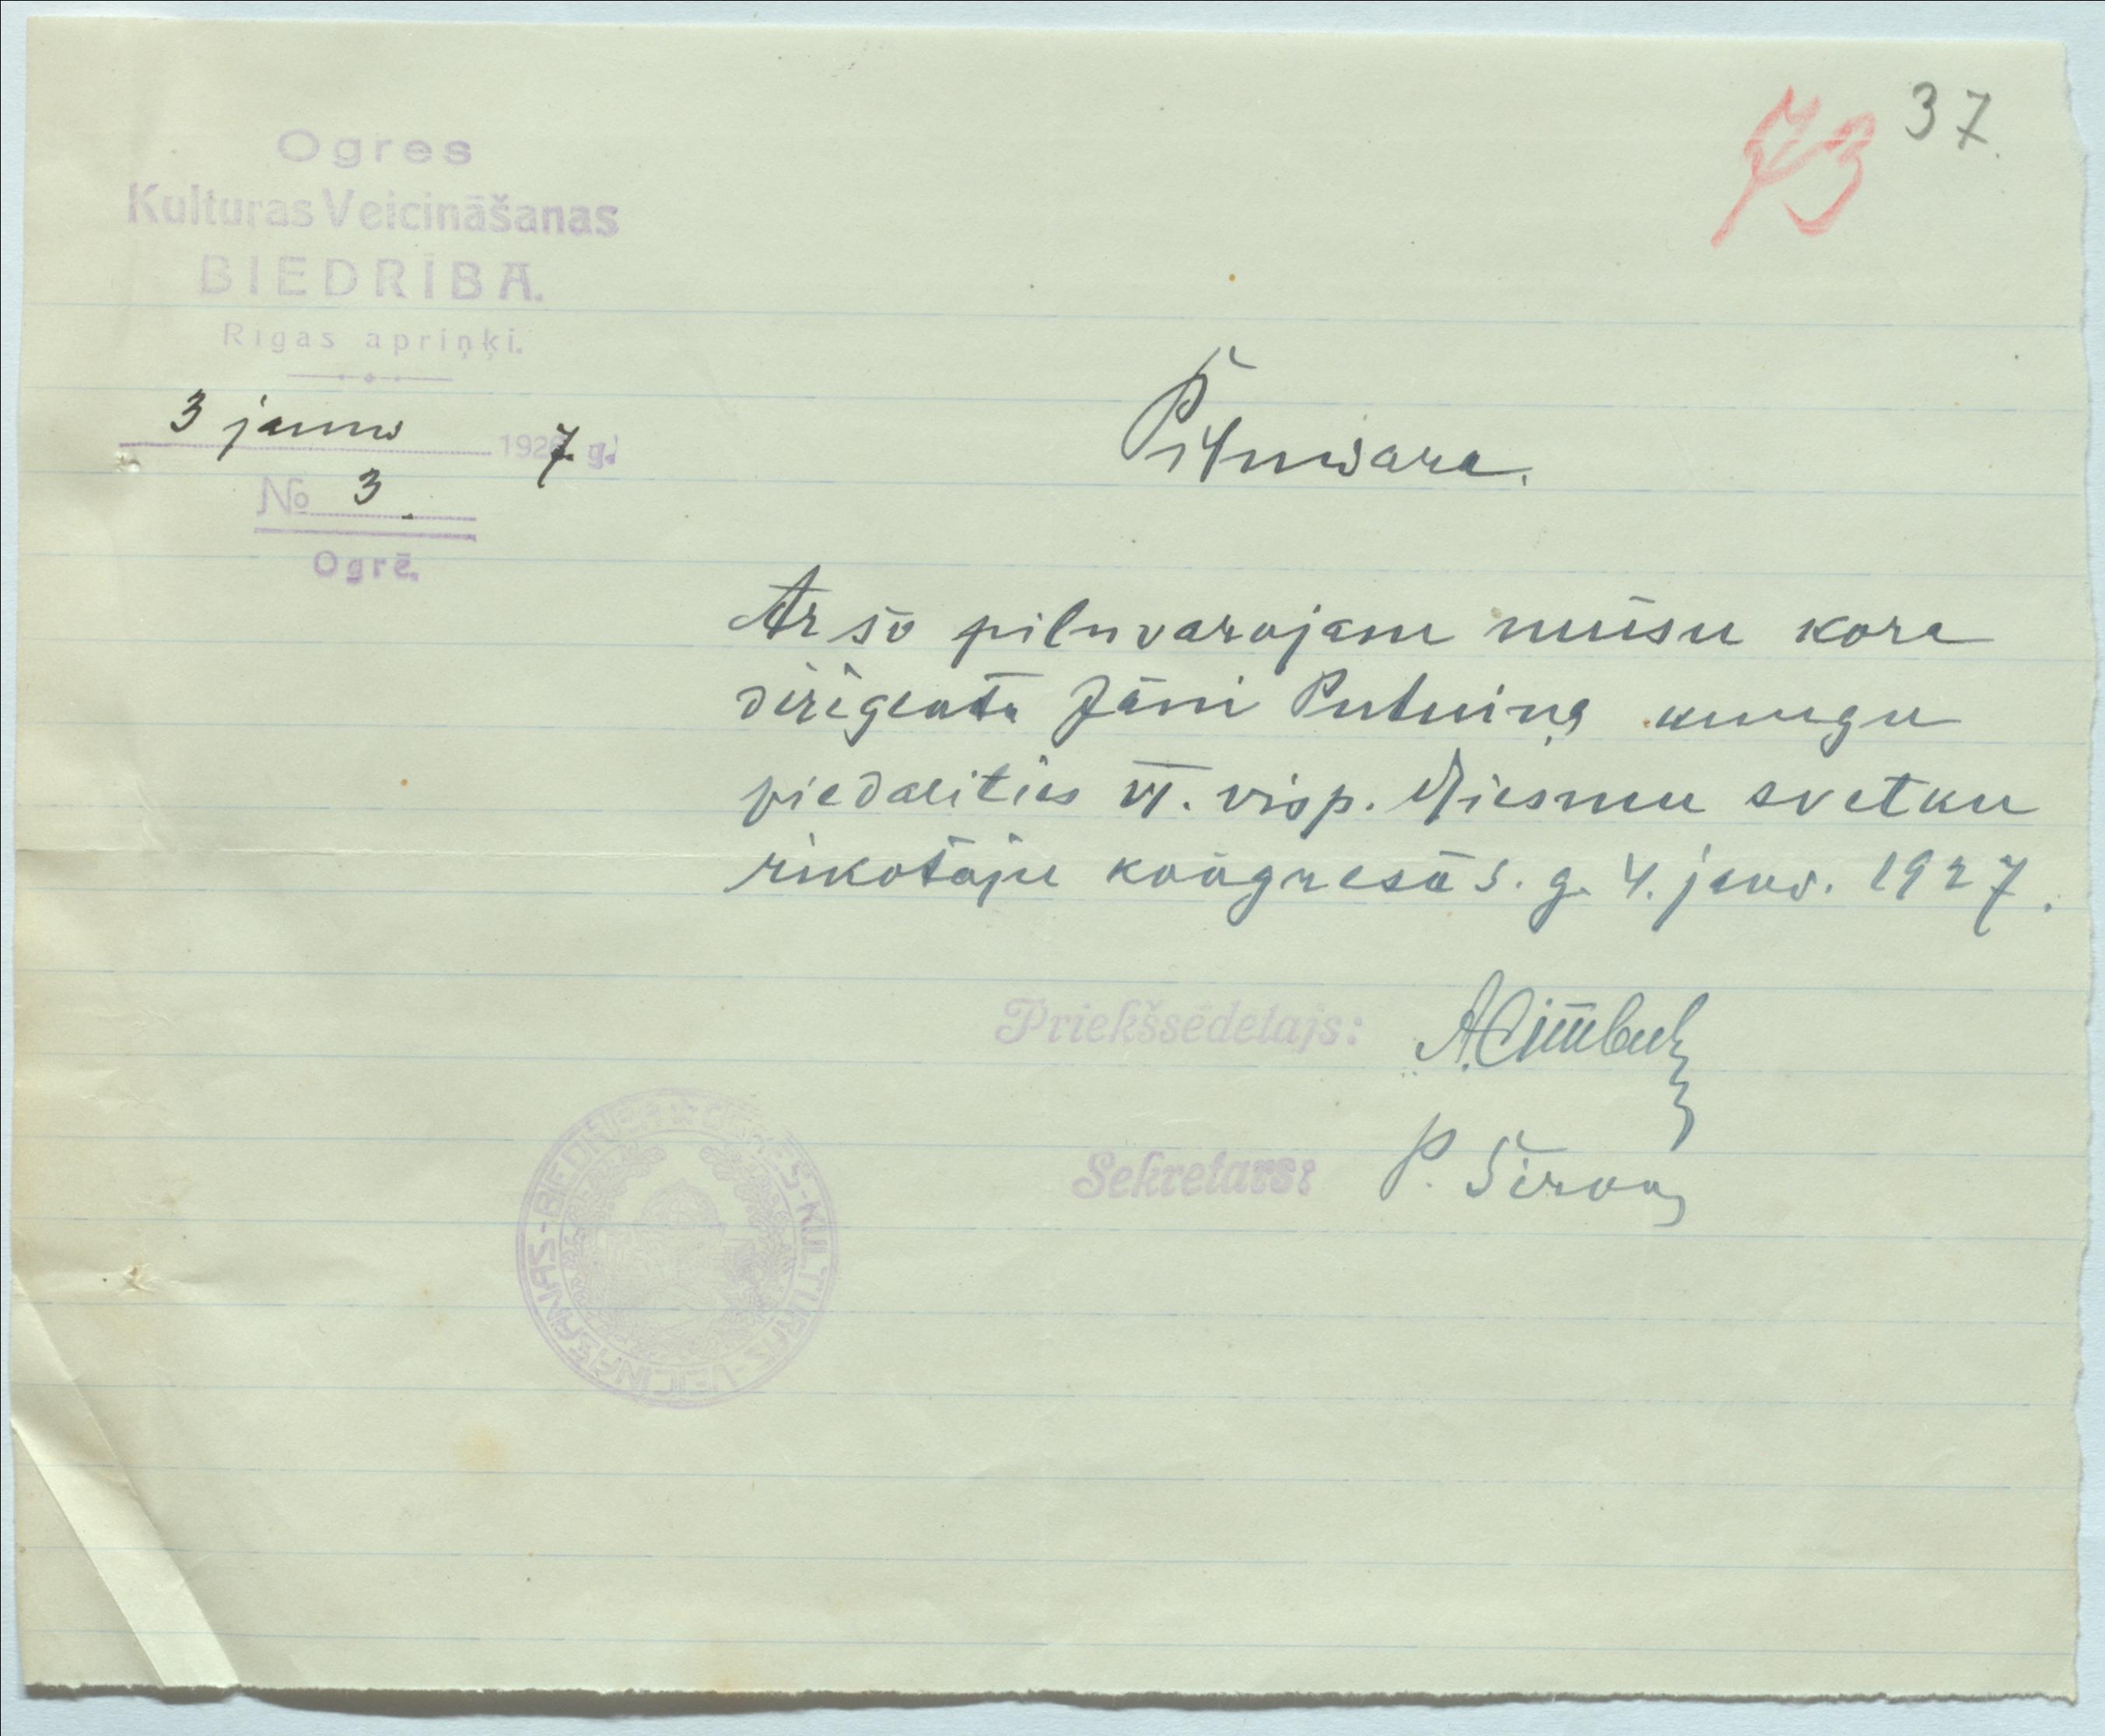 37.
73
Ogres
Kulturas Veicināšanas
BIEDRIBA.
Rigas apriņķi.
3 janw 1927. g.
No 3.
Ogrē.
Pilnwara.
Ar šo pilnvarojam mūsu kora
dirigentu Jāni Putniņa kungu
piedalities VI. visp. Dziesmu svetku
rikotāju kongresā š. g. 4. janv. 1927.
Priekšsēdetajs:
Sekretars: P.
OGRES-KULTURAS-VEICINAŠANAS-BIEDRIBA